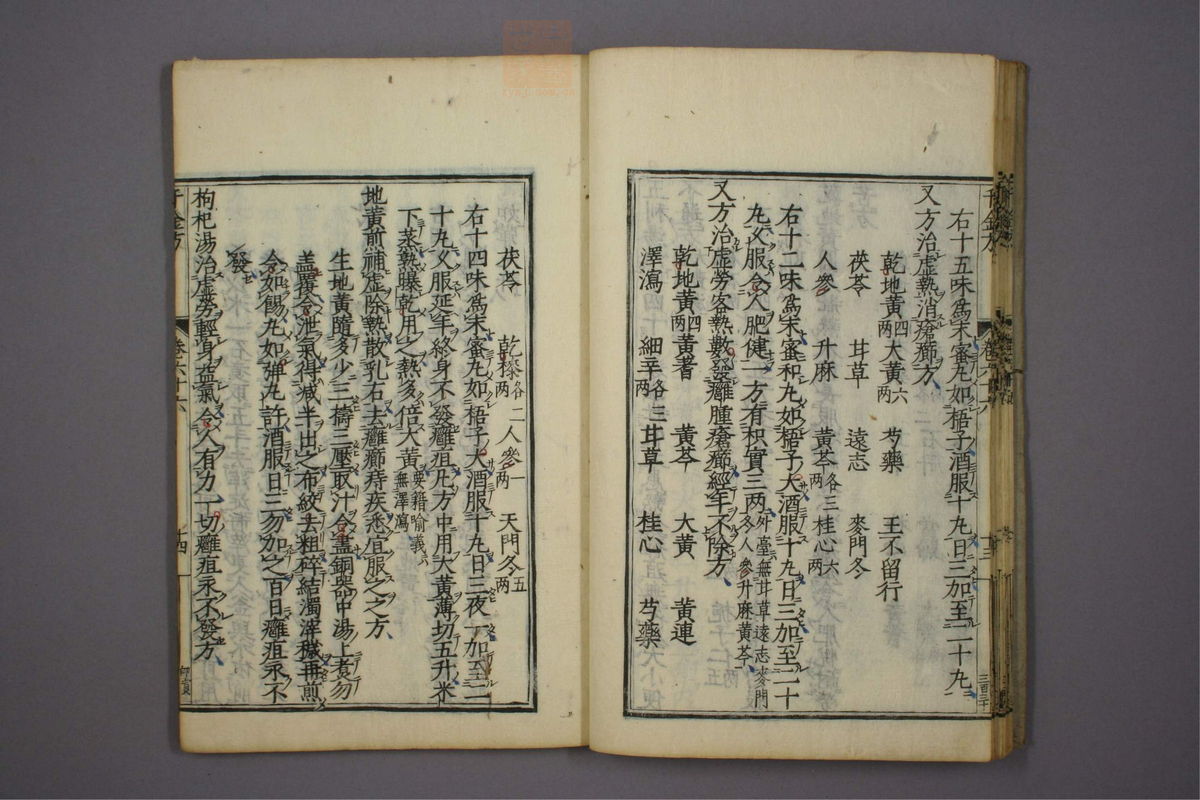 右十五味爲末蜜丸如梧子酒服十丸日三加至二十丸
又方治虛熱消瘡癤方
乾地黃四兩 大黃六兩 芍藥 王不留行
茯苓 甘草 遠志 麥門冬
人參 升麻 黃芩各三兩 桂心六兩
右十二味爲末蜜和丸如梧子大酒服十丸日三加至二十
丸又服令人肥健一方有枳實三兩外臺無甘草遠志麥門冬人參升麻黃芩
又方治虛勞客熱數發癰腫瘡癤經年不除方
乾地黃四兩 黃耆 黃芩 大黃 黃連
澤瀉 細辛各三兩 甘草 桂心 芍藥
茯苓 乾漆各二兩 人參一兩 天門冬五兩
右十四味爲末蜜丸如梧子大酒服十丸日三夜一加至二
十丸又服延年終身不發癰疽凡方中用大黃薄切五升米
下蒸熟曝乾用之熱多倍大黃要籍喻義無澤瀉
地黃煎補虛除熱散乳石去癰癤痔疾悉宜服之之方
生地黃隨多少三擣三壓取汁令盡銅器中湯上煮勿
蓋覆令泄氣得減半出之布絞去粗碎結濁滓穢再煎
令如餳丸如彈丸許酒服日三勿加之百日癰疽永不
發
枸杞湯治虛勞輕身益氣令人有力一切癰疽永不發方
千金方
十四